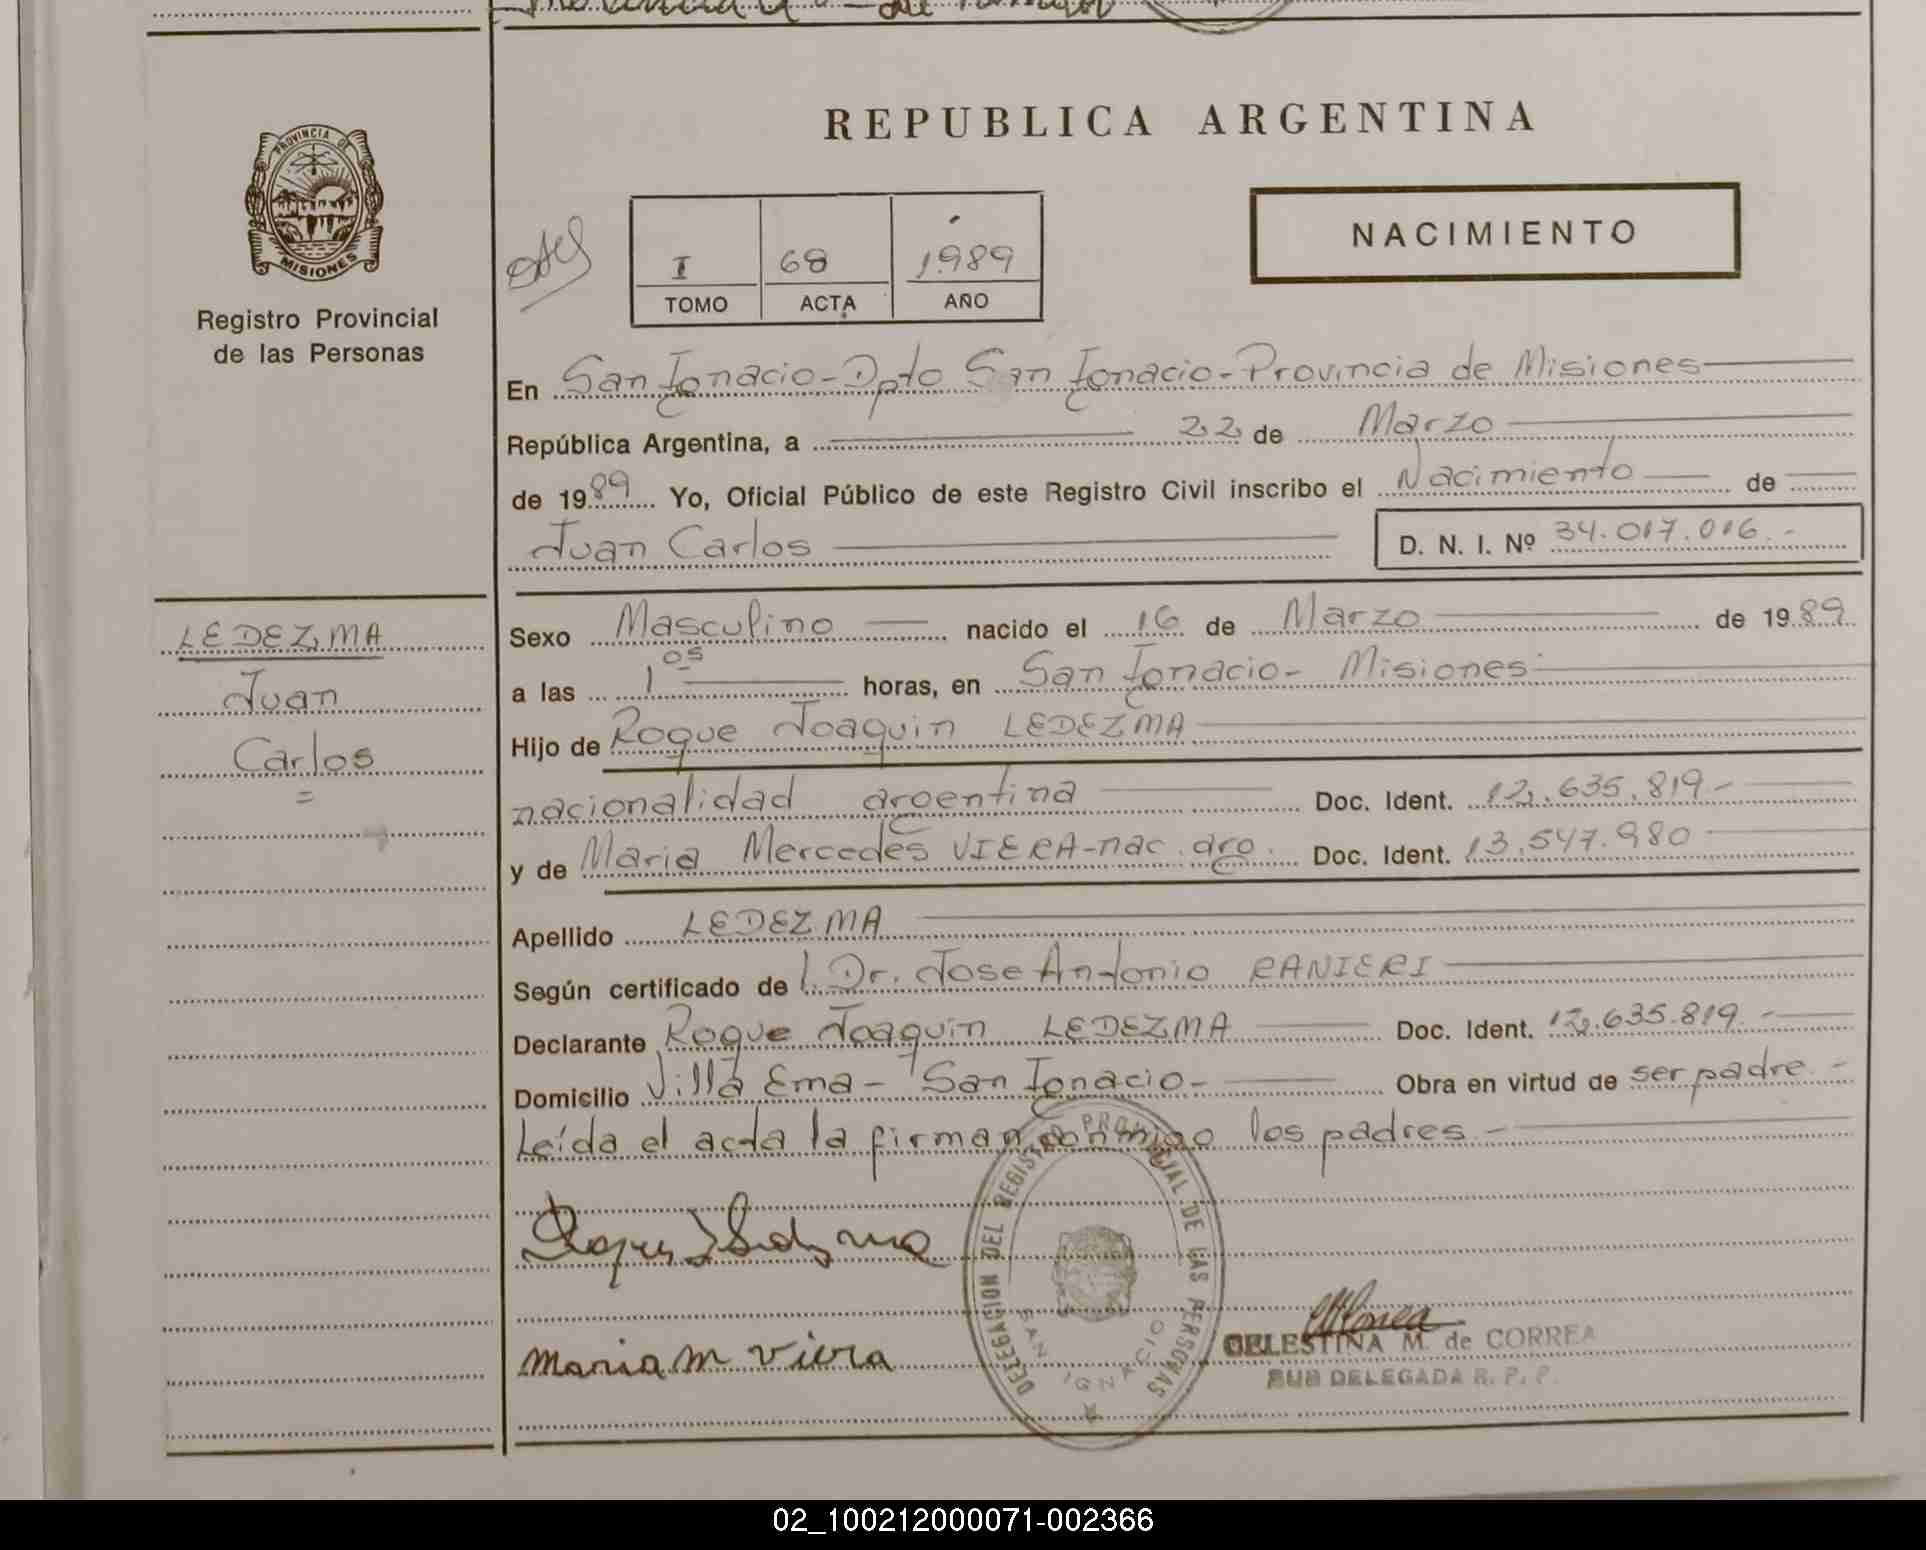 REPUBLICA ARGENTINA
PROVINCIA DE
MISIONES
Registro Provincial
de las Personas
I 68 1989
TOMO ACTA AÑO
NACIMIENTO
En San Ignacio - Dpto San Ignacio - Provincia de Misiones
República Argentina, a 22 de Marzo
de 1989 Yo, Oficial Público de este Registro Civil inscribo el Nacimiento de
Juan Carlos D. N. I. Nº 34.017.016.-
LEDEZMA
Juan
Carlos
Sexo Masculino nacido el 16 de Marzo de 1989
a las 1 05 horas, en San Ignacio - Misiones
Hijo de Roque Joaquin LEDEZMA
nacionalidad argentina Doc. Ident. 12.635.819-
y de Maria Mercedes VIERA - nac. arg. Doc. Ident. 13.547.980
Apellido LEDEZMA
Según certificado de l Dr. Jose Antonio RANIERI
Declarante Roque Joaquin LEDEZMA Doc. Ident. 12.635.819.-
Domicilio Villa Ema - San Ignacio - Obra en virtud de ser padre.-
Leída el acta la firman conmigo los padres.-
DELEGACION DEL REGISTRO PROVINCIAL DE LAS PERSONAS
SAN IGNACIO
Maria M Viera
CELESTINA M. de CORREA
SUB DELEGADA R. P. P.
02_100212000071-002366